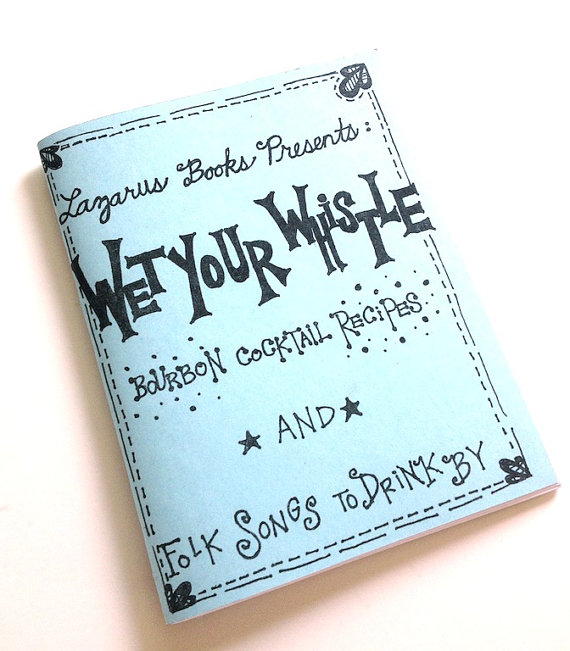 Lazarus Books Presents:
WET YOUR WHiSTLE
BOURBON COCKTAIL RECiPES
AND
FOLK SONGS TO DRINK BY